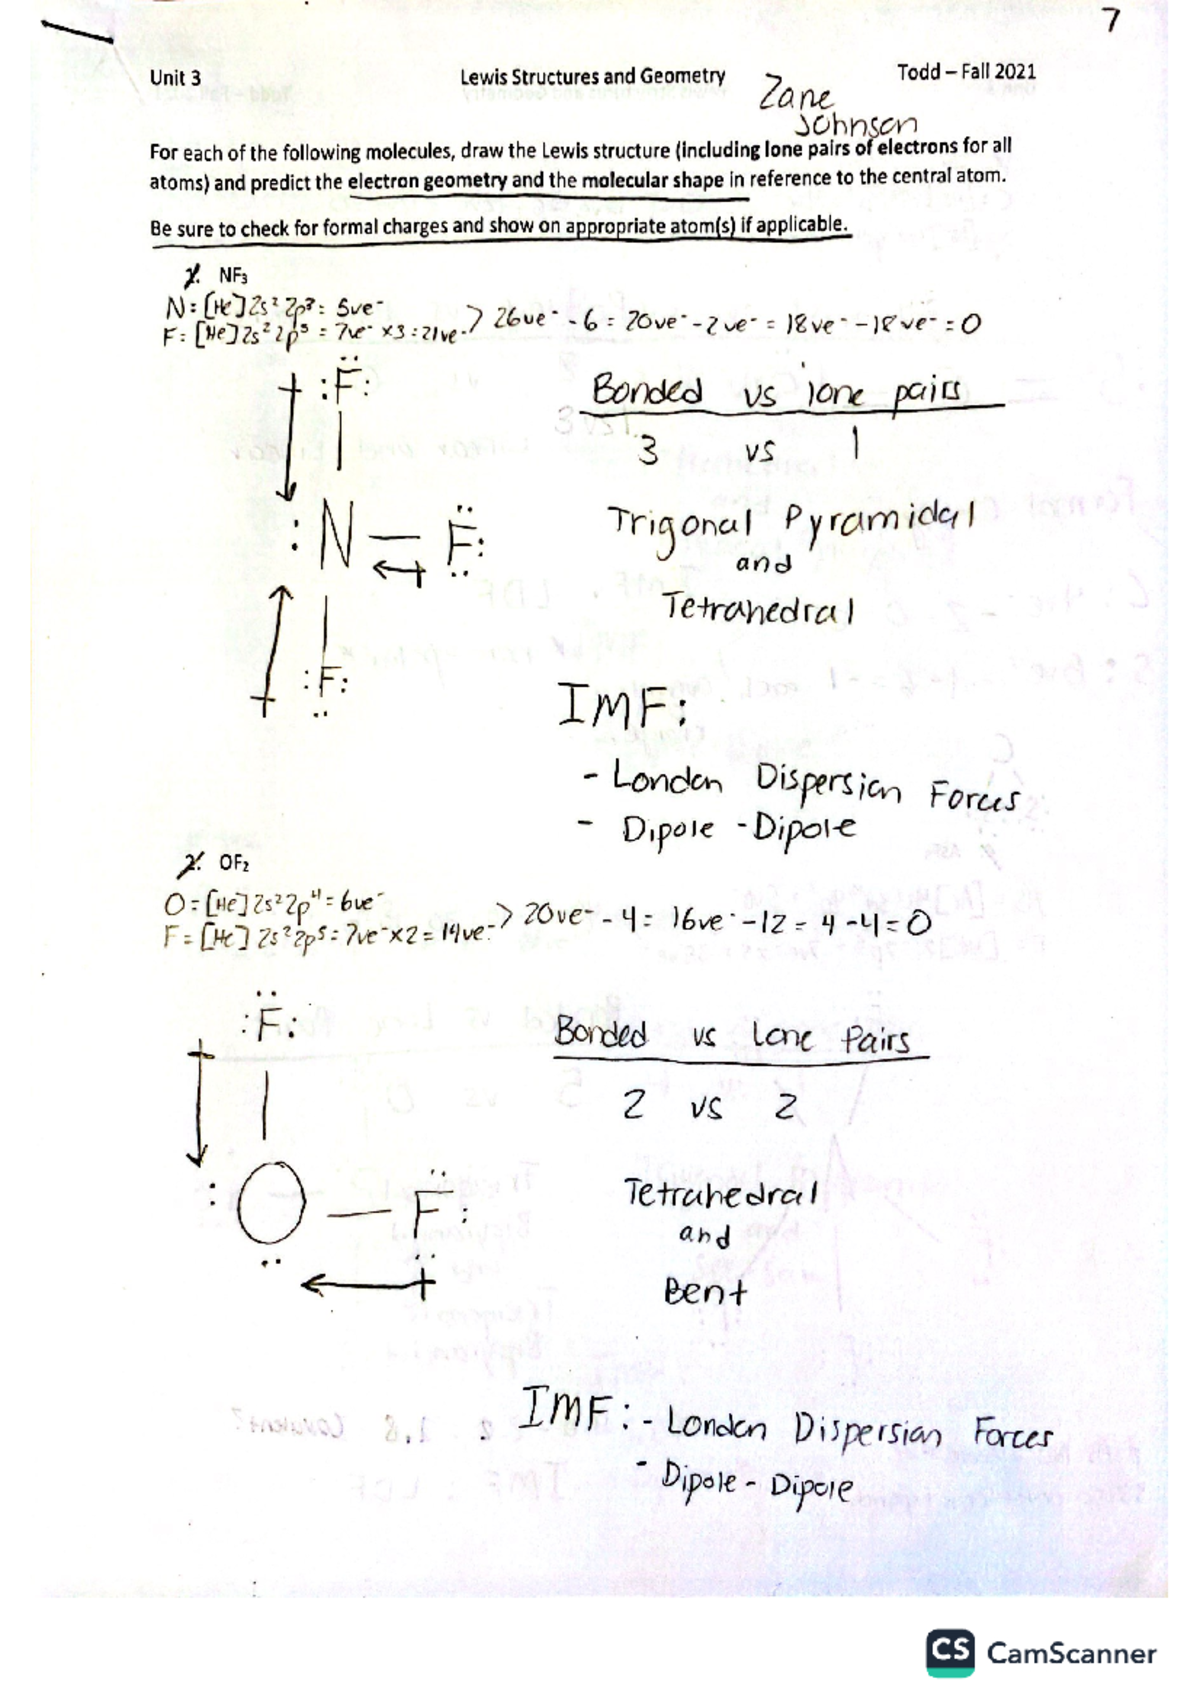 7
Unit 3 Lewis Structures and Geometry Todd – Fall 2021
Zane
Johnson
For each of the following molecules, draw the Lewis structure (including lone pairs of electrons for all
atoms) and predict the electron geometry and the molecular shape in reference to the central atom.
Be sure to check for formal charges and show on appropriate atom(s) if applicable.
1. NF₃
N: [He] 2s² 2p³ = 5ve⁻
F: [He] 2s² 2p⁵ = 7ve⁻ x3 = 21ve⁻ > 26ve⁻ - 6 = 20ve⁻ - 2ve⁻ = 18ve⁻ - 18ve⁻ = 0
:F:
:N — F:
:F:
Bonded vs lone pairs
3 vs 1
Trigonal Pyramidal
and
Tetrahedral
IMF:
- London Dispersion Forces
- Dipole - Dipole
2. OF₂
O = [He] 2s² 2p⁴ = 6ve⁻
F = [He] 2s² 2p⁵ = 7ve⁻ x 2 = 14ve⁻ > 20ve⁻ - 4 = 16ve⁻ - 12 = 4 - 4 = 0
:F:
:O — F:
Bonded vs Lone Pairs
2 vs 2
Tetrahedral
and
Bent
IMF: - London Dispersion Forces
- Dipole - Dipole
CS CamScanner